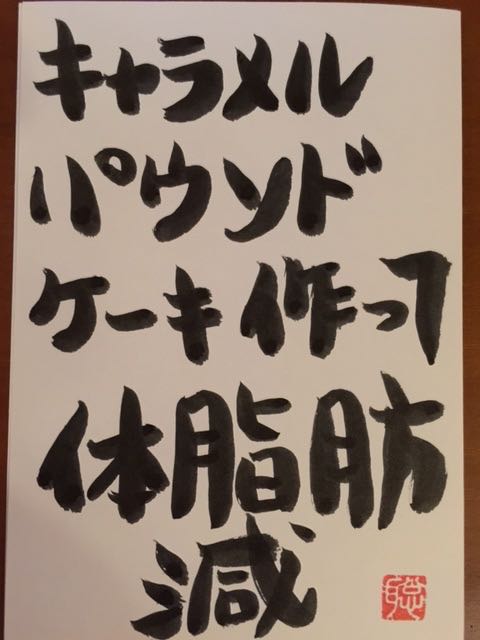 キャラメル
パウンド
ケーキ作って
体脂肪
減
聡